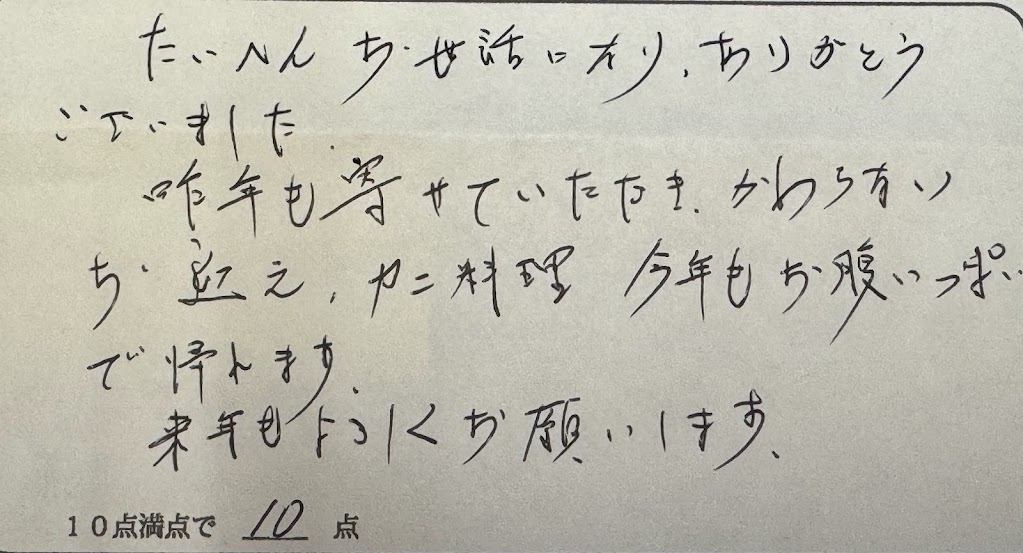 たいへんお世話になり、ありがとう
ございました。
昨年も寄せていただき、かわらない
お迎え、カニ料理 今年もお腹いっぱい
で帰れます。
来年もよろしくお願いします。
10点満点で 10 点